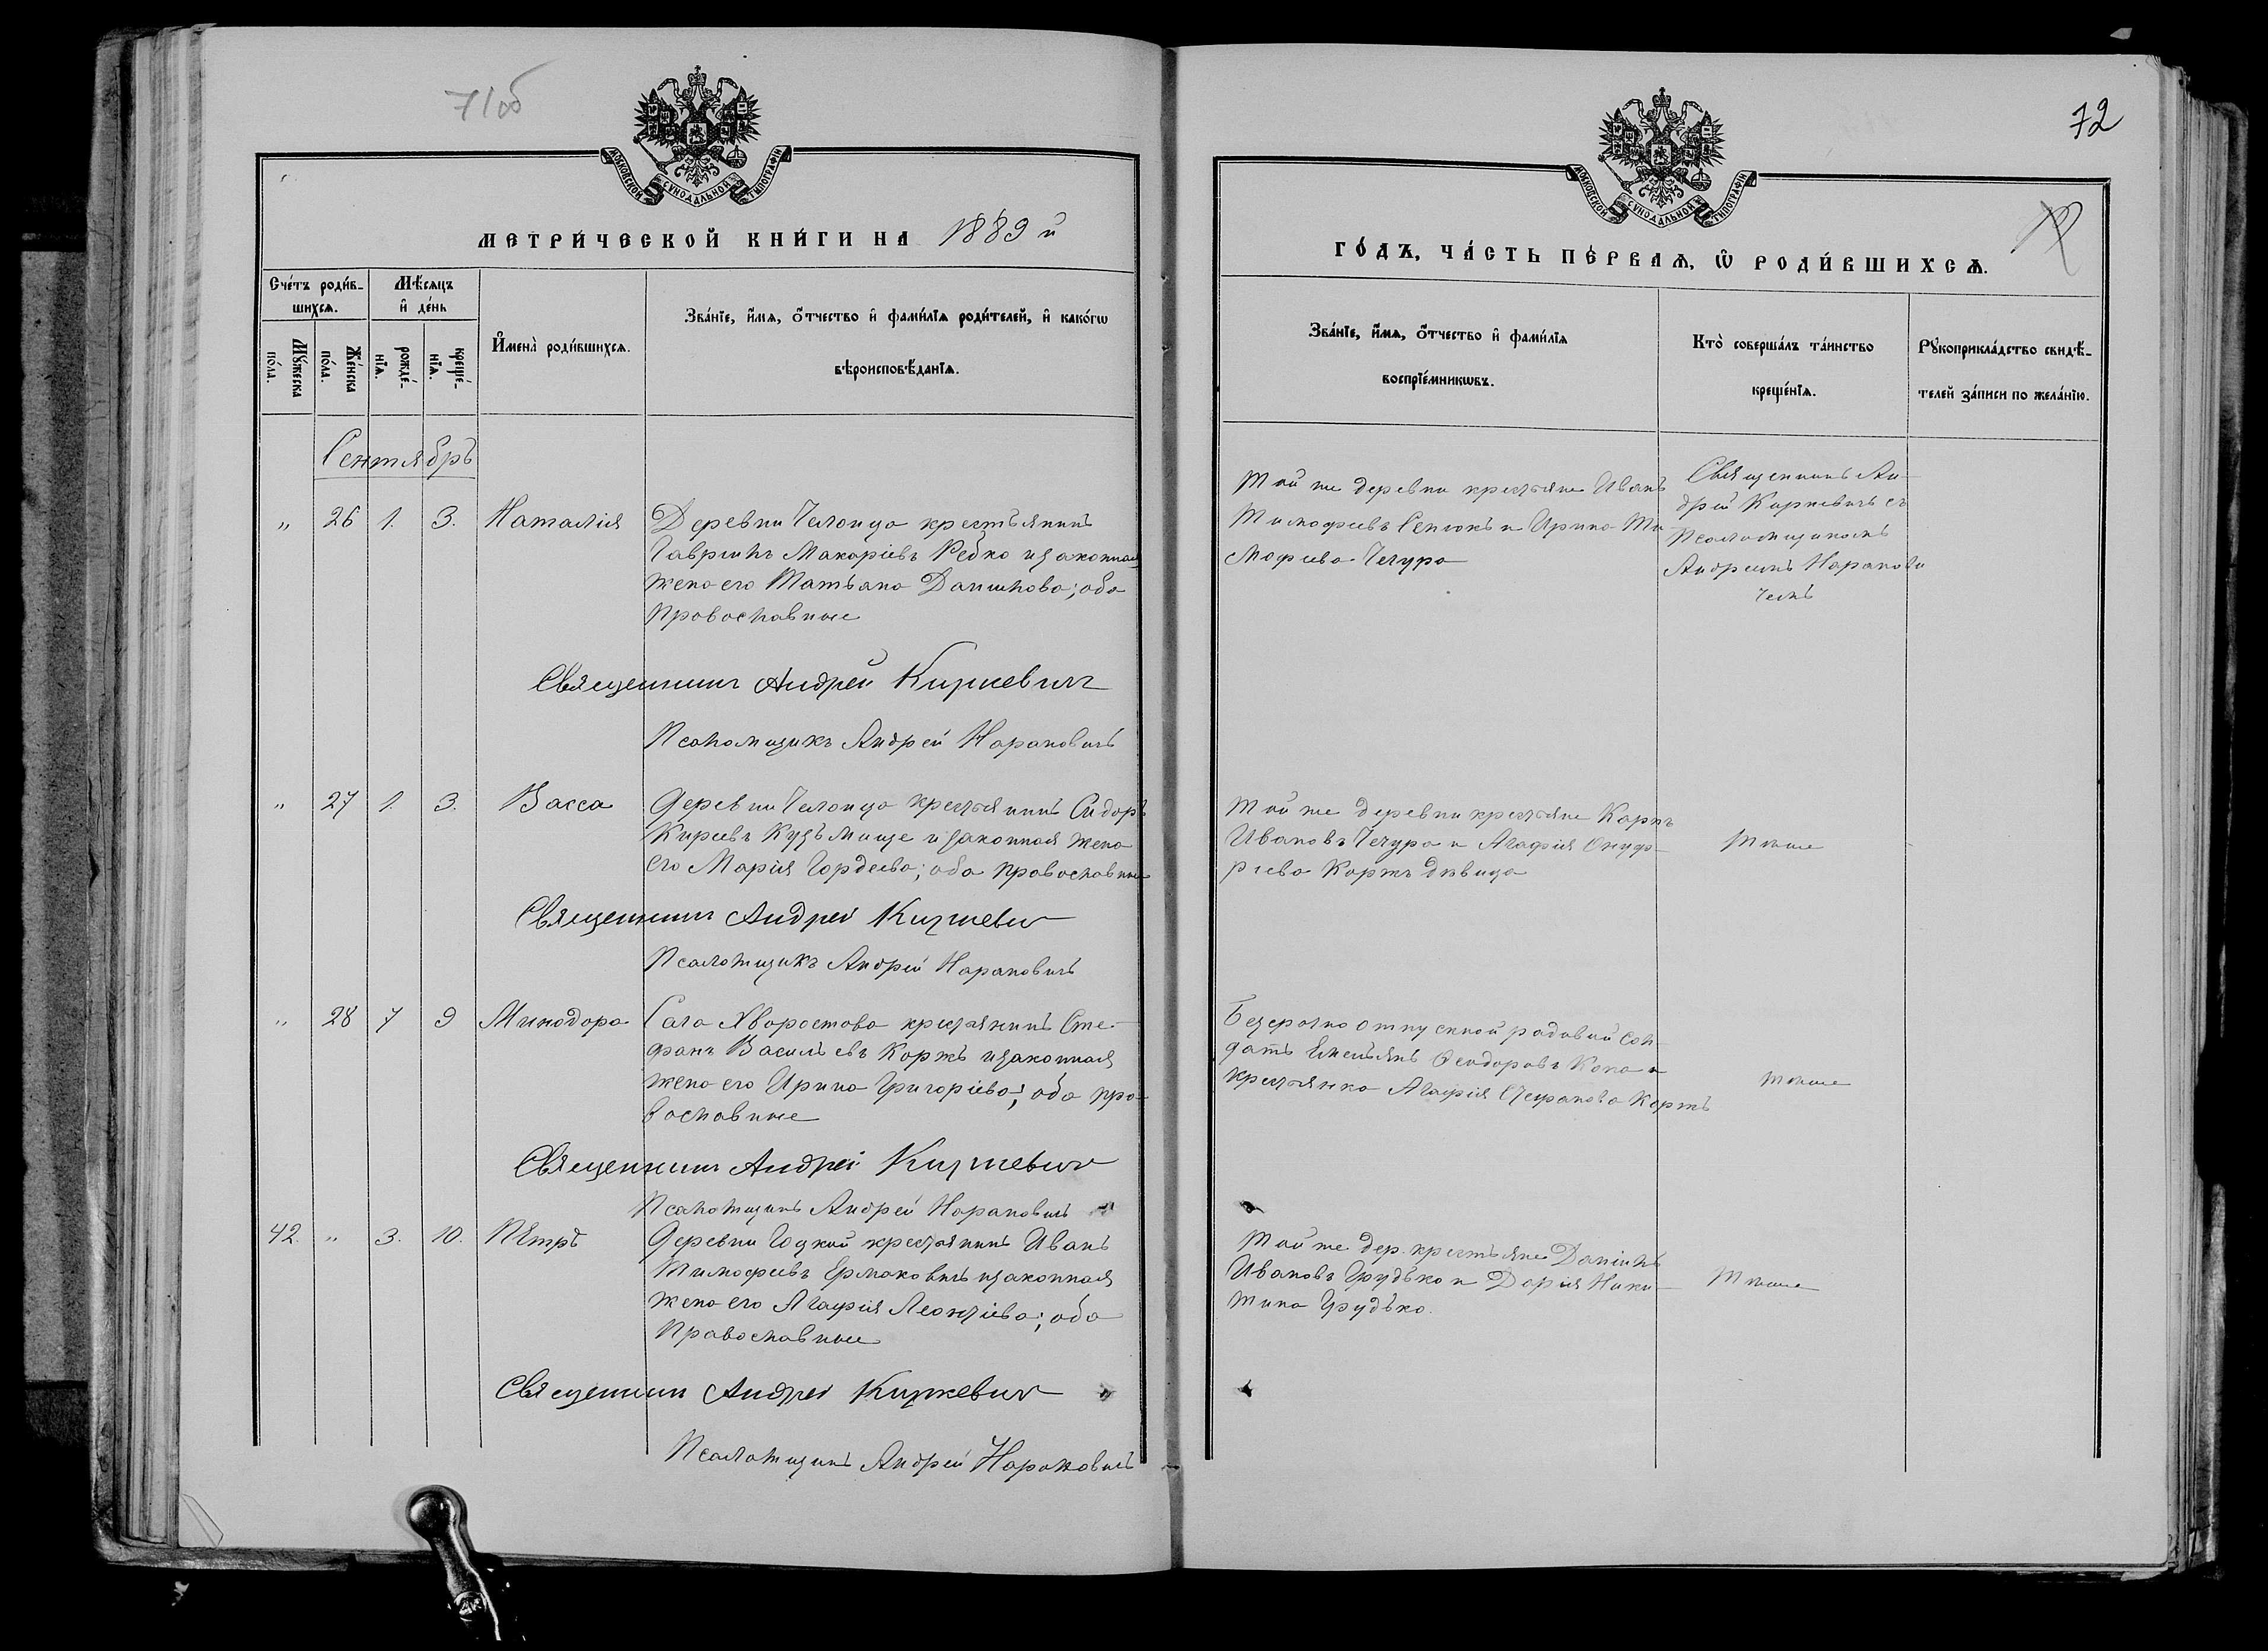 71об
МОСКОВСКОЙ СУНОДАЛЬНОЙ ТИПОГРАФІИ
МЕТРИ́ЧЕСКОЙ КНИ́ГИ НА 1889 й
Сче́тъ роди́в-
шихся.
Мѣ́сяцъ
и҆ де́нь
Мꙋ́жеска
по́ла.
Же́нска
по́ла.
рожде́-
нїѧ.
креще́-
нїѧ.
И҆мена̀ роди́вшихсѧ.
Зва́нїе, и҆́мѧ, ѻ҆́тчество и҆ фами́лїѧ роди́телей, и҆ како́гѡ
вѣроисповѣ́данїѧ.
Сентябрь
„ 26 1. 3. Наталія Деревни Челонца крестьянинъ
Гавріилъ Макаріевъ Редко и законная
жена его Татьяна Данилова; оба
православные
Священникъ Андрей Киркевичъ
Псаломщикъ Андрей Нарановичъ
„ 27 1. 3. Васса Деревни Челонца крестьянинъ Сидоръ
Киреевъ Кузьмище и законная жена
его Марія Гордеева; оба православные
Священникъ Андрей Киркевич
Псаломщикъ Андрей Нарановичъ
„ 28 7 9 Минодора Села Хворостова крестьянинъ Сте-
фанъ Васильевъ Коржъ и законная
жена его Ирина Григоріева; оба пра-
вославные
Священникъ Андрей Киркевич
Псаломщикъ Андрей Нарановичъ
42. „ 3. 10. Пётръ Деревни Гоцкой крестьянинъ Иванъ
Тимофеевъ Ермаковичъ и законная
жена его Агафія Леонтіева; оба
православные
Священникъ Андрей Киркевич
Псаломщикъ Андрей Нарановичъ
72
МОСКОВСКОЙ СУНОДАЛЬНОЙ ТИПОГРАФІИ
ГО́ДЪ, ЧА́СТЬ ПЕ́РВАѦ, Ѡ҆ РОДИ́ВШИХСѦ.
Зва́нїе, и҆́мѧ, ѻ҆́тчество и҆ фами́лїѧ
воспрїе́мникѡвъ.
Кто̀ соверша́лъ та́инство
креще́нїѧ.
Рꙋкоприкла́дство свидѣ́-
телей за́писи по жела́нїю.
Той же деревни крестьяне Иванъ
Тимофеевъ Сенюкъ и Ирина Ти-
мофеева Чечура
Священникъ Ан-
дрей Киркевичъ съ
Псаломщикомъ
Андреемъ Наранови-
чемъ
Той же деревни крестьяне Карпъ
Ивановъ Чечура и Агафія Онуф-
ріева Коржъ девица
Тѣже
Безсрочно отпускной рядовой сол-
датъ Емельянъ Феодоровъ Копа и
крестьянка Агафія Стефанова Коржъ
тѣже
Той же дер. крестьяне Даніилъ
Ивановъ Грудько и Дарія Ники-
тина Грудько.
Тѣже